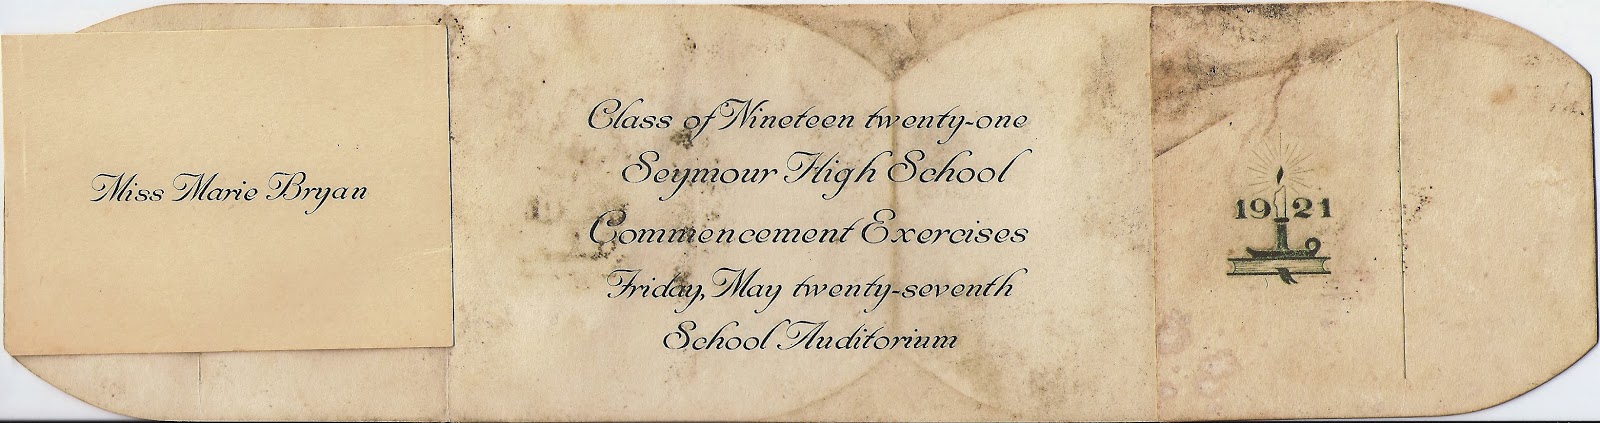 Miss Marie Bryan
Class of Nineteen twenty-one
Seymour High School
Commencement Exercises
Friday, May twenty-seventh
School Auditorium
1921